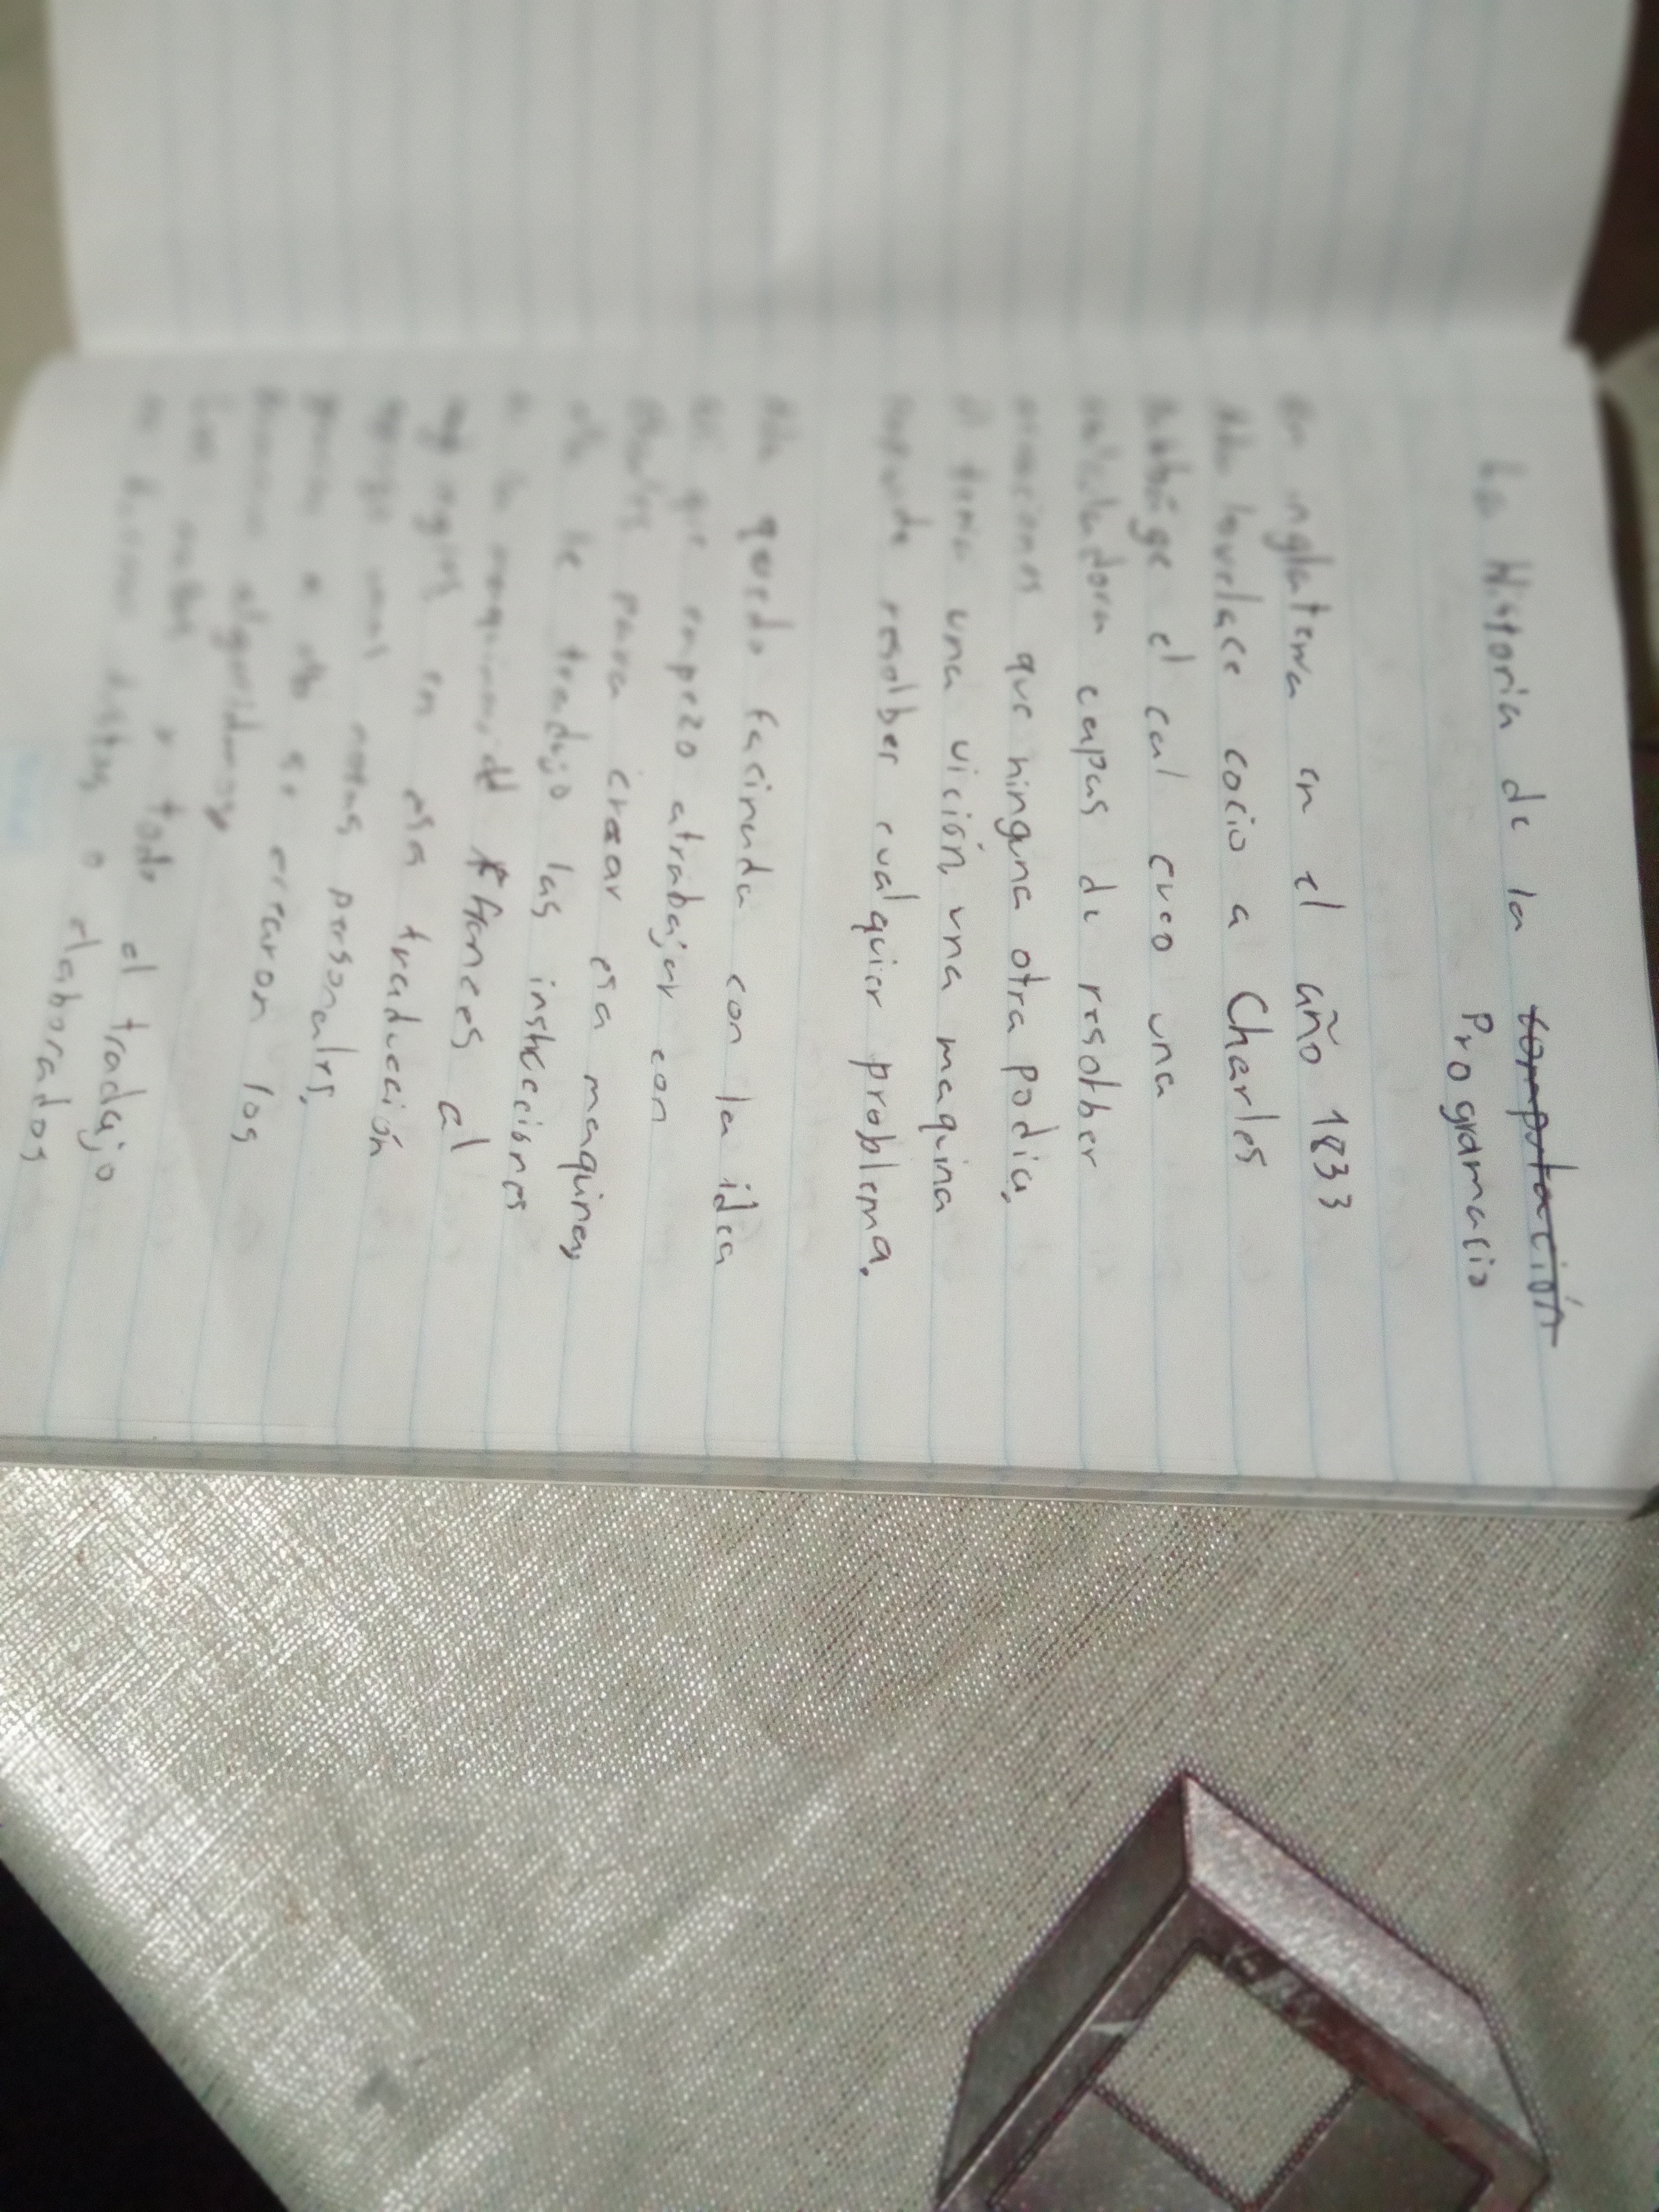 La Historia de la computación
Programacio
En inglaterra en el año 1833
Ada lovelace cocio a Charles
Babbage el cual creo una
calculadora capas de resolber
que ninguna otra podia,
el tenia una vición, una maquina
resolber cualquier problema.
Ada quedo facinada con la idea
asi que empezo atrabajar con
Charles para crear esa maquina,
ella le tradujo las instrucciones
a la maquina, del frances al
ingles en esa traducción
unas notas personales,
a ello se crearon los
algoridmos,
y todo el tradajo
o elaborados